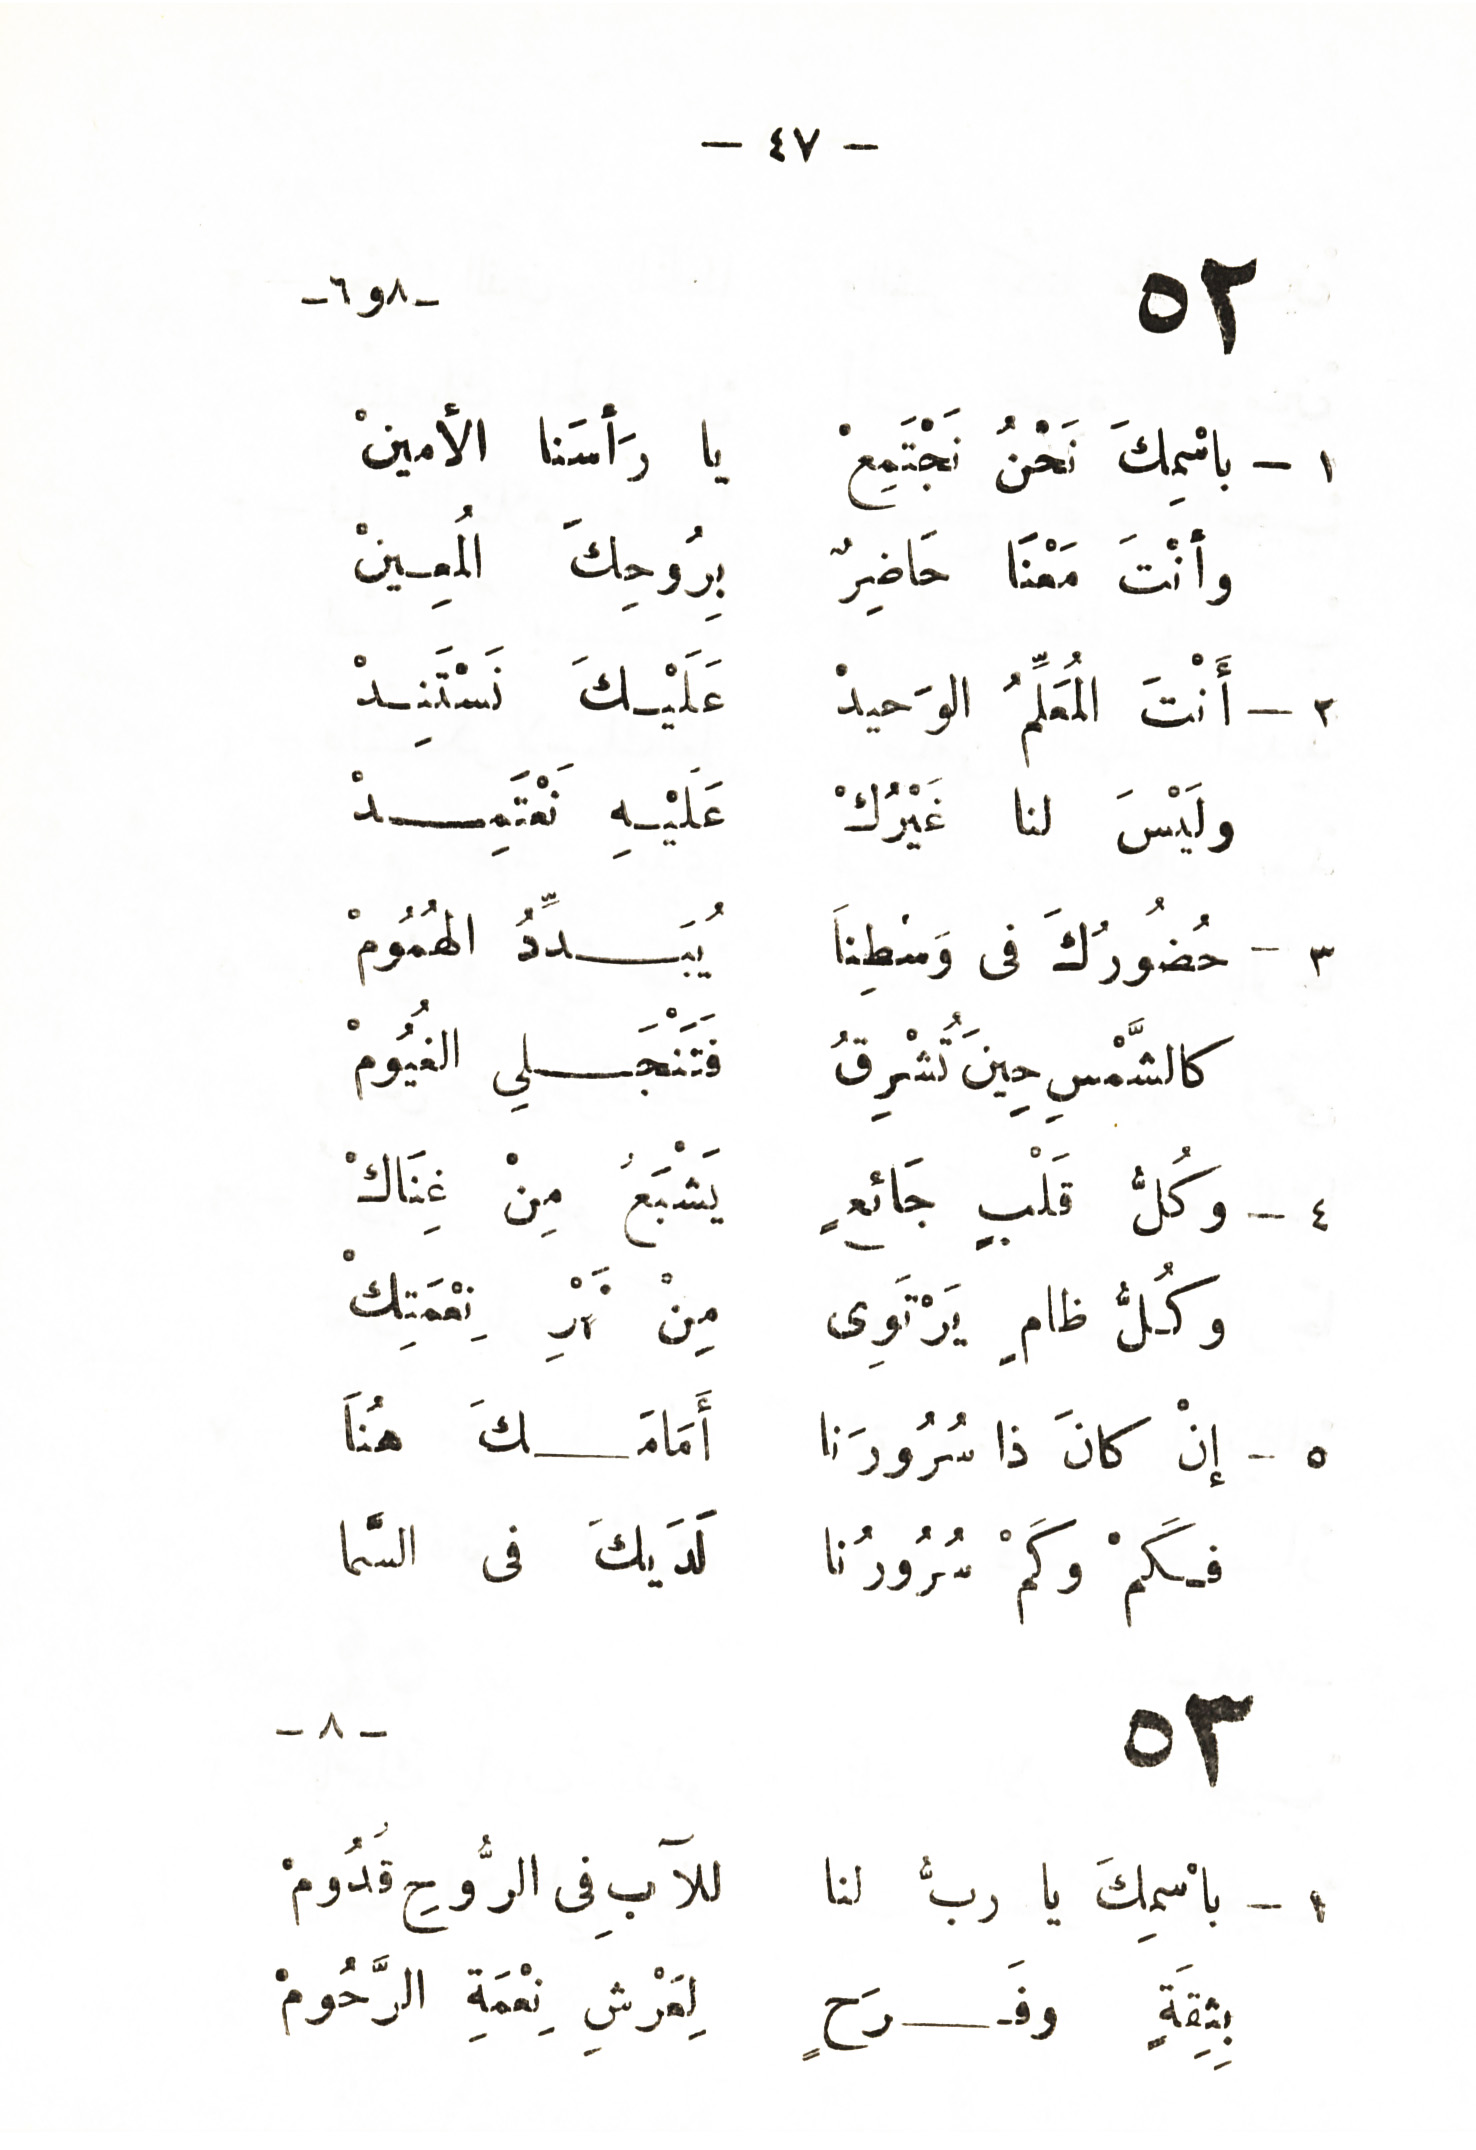 — ٤٧ —
٥٢ -٨و٦-
١ — باسْمِكَ نَحْنُ نَجْتَمِعْ يا رَأسَنا الأمينْ
وأنْتَ مَعْنَا حَاضِرٌ بِرُوحِكَ المُعِينْ
٢ — أَنْتَ المُعَلِّمُ الوَحيدْ عَلَيْكَ نَسْتَنِدْ
ولَيْسَ لنا غَيْرُكْ عَلَيْهِ نَعْتَمِدْ
٣ — حُضُورُكَ فى وَسْطِناَ يُبَدِّدُ الهُمُومْ
كالشَّمْسِ حِينَ تُشْرِقُ فَتَنْجَلِي الغُيُومْ
٤ — وكُلُّ قَلْبٍ جَائعٍ يَشْبَعُ مِنْ غِنَاكْ
وكُلُّ ظامٍ يَرْتَوِى مِنْ نَهْرِ نِعْمَتِكْ
٥ — إنْ كانَ ذا سُرُورَنا أَمَامَكَ هُناَ
فكَمْ وكَمْ سُرُورُنا لَدَيكَ فى السَّما
٥٣ - ٨ -
١ — باسْمِكَ يا ربُّ لنا للآبِ فِى الرُّوحِ قُدُومْ
بِثِقَةٍ وفَرَحٍ لِعَرْشِ نِعْمَةِ الرَّحُومْ